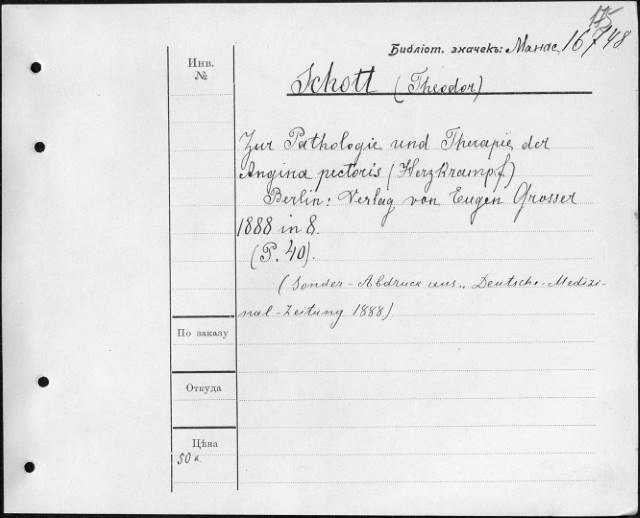 Библіот. значекъ: Манас 16/748
Инв.
№
Schott (Theodor)
Zur Pathologie und Therapie der
Angina pectoris (Herzkrampf)
Berlin: Verlag von Eugen Grosser
1888 in 8.
(P. 40).
(Sonder-Abdruck aus „Deutsche-Medizi-
nal-Zeitung 1888)
По заказу
Откуда
Цѣна
50 к.